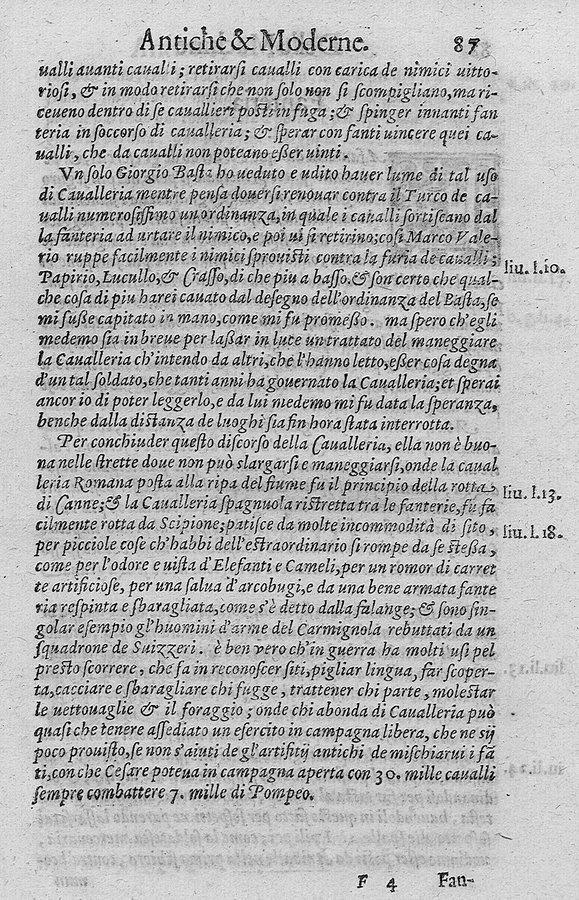 Antiche & Moderne. 87
ualli auanti caualli; retirarsi caualli con carica de nimici uitto-
riosi, & in modo retirarsi che non solo non si scompigliano, ma ri-
ceueno dentro di se cauallieri posti in fuga; & spinger innanti fan
teria in soccorso di caualleria; & sperar con fanti uincere quei ca-
ualli, che da caualli non poteano eßer uinti.
Vn solo Giorgio Basta ho ueduto e udito hauer lume di tal uso
di Caualleria mentre pensa douersi renouar contra il Turco de ca-
ualli numerosissimo un ordinanza, in quale i caualli sortiscano dal
la fanteria ad urtare il nimico, e poi ui si retirino; cosi Marco Vale-
rio ruppe facilmente i nimici sprouisti contra la furia de caualli;
Papirio, Lucullo, & Crasso, di che piu a basso. & son certo che qual- liu. l. 10.
che cosa di piu harei cauato dal desegno dell'ordinanza del Basta, se
mi fuße capitato in mano, come mi fu promeßo. ma spero ch'egli
medemo sia in breue per laßar in luce un trattato del maneggiare
la Caualleria ch'intendo da altri, che l'hanno letto, eßer cosa degna
d'un tal soldato, che tanti anni ha gouernato la Caualleria; et sperai
ancor io di poter leggerlo, e da lui medemo mi fu data la speranza,
benche dalla distanza de luoghi sia fin hora stata interrotta.
Per conchiuder questo discorso della Caualleria, ella non è buo-
na nelle strette doue non può slargarsi e maneggiarsi, onde la caual
leria Romana posta alla ripa del fiume fu il principio della rotta liu. l. 13.
di Canne; & la Caualleria spagnuola ristretta tra le fanterie, fu fa
cilmente rotta da Scipione; patisce da molte incommodità di sito, liu. l. 18.
per picciole cose ch'habbi dell'estraordinario si rompe da se steßa,
come per l'odore e uista d'Elefanti e Cameli, per un romor di carret
te artificiose, per una salua d'arcobugi, e da una bene armata fante
ria respinta e sbaragliata, come s'è detto dalla falange; & sono sin-
golar esempio gl'huomini d'arme del Carmignola rebuttati da un
squadrone de Suizzeri. è ben uero ch'in guerra ha molti usi pel
presto scorrere, che fa in reconoscer siti, pigliar lingua, far scoper-
ta, cacciare e sbaragliare chi fugge, trattener chi parte, molestar
le uettouaglie & il foraggio; onde chi abonda di Caualleria può
quasi che tenere assediato un esercito in campagna libera, che ne sij
poco prouisto, se non s'aiuti de gl'artifitij antichi de mischiarui i fã
ti, con che Cesare poteua in campagna aperta con 30. mille caualli
sempre combattere 7. mille di Pompeo.
F 4 Fan-